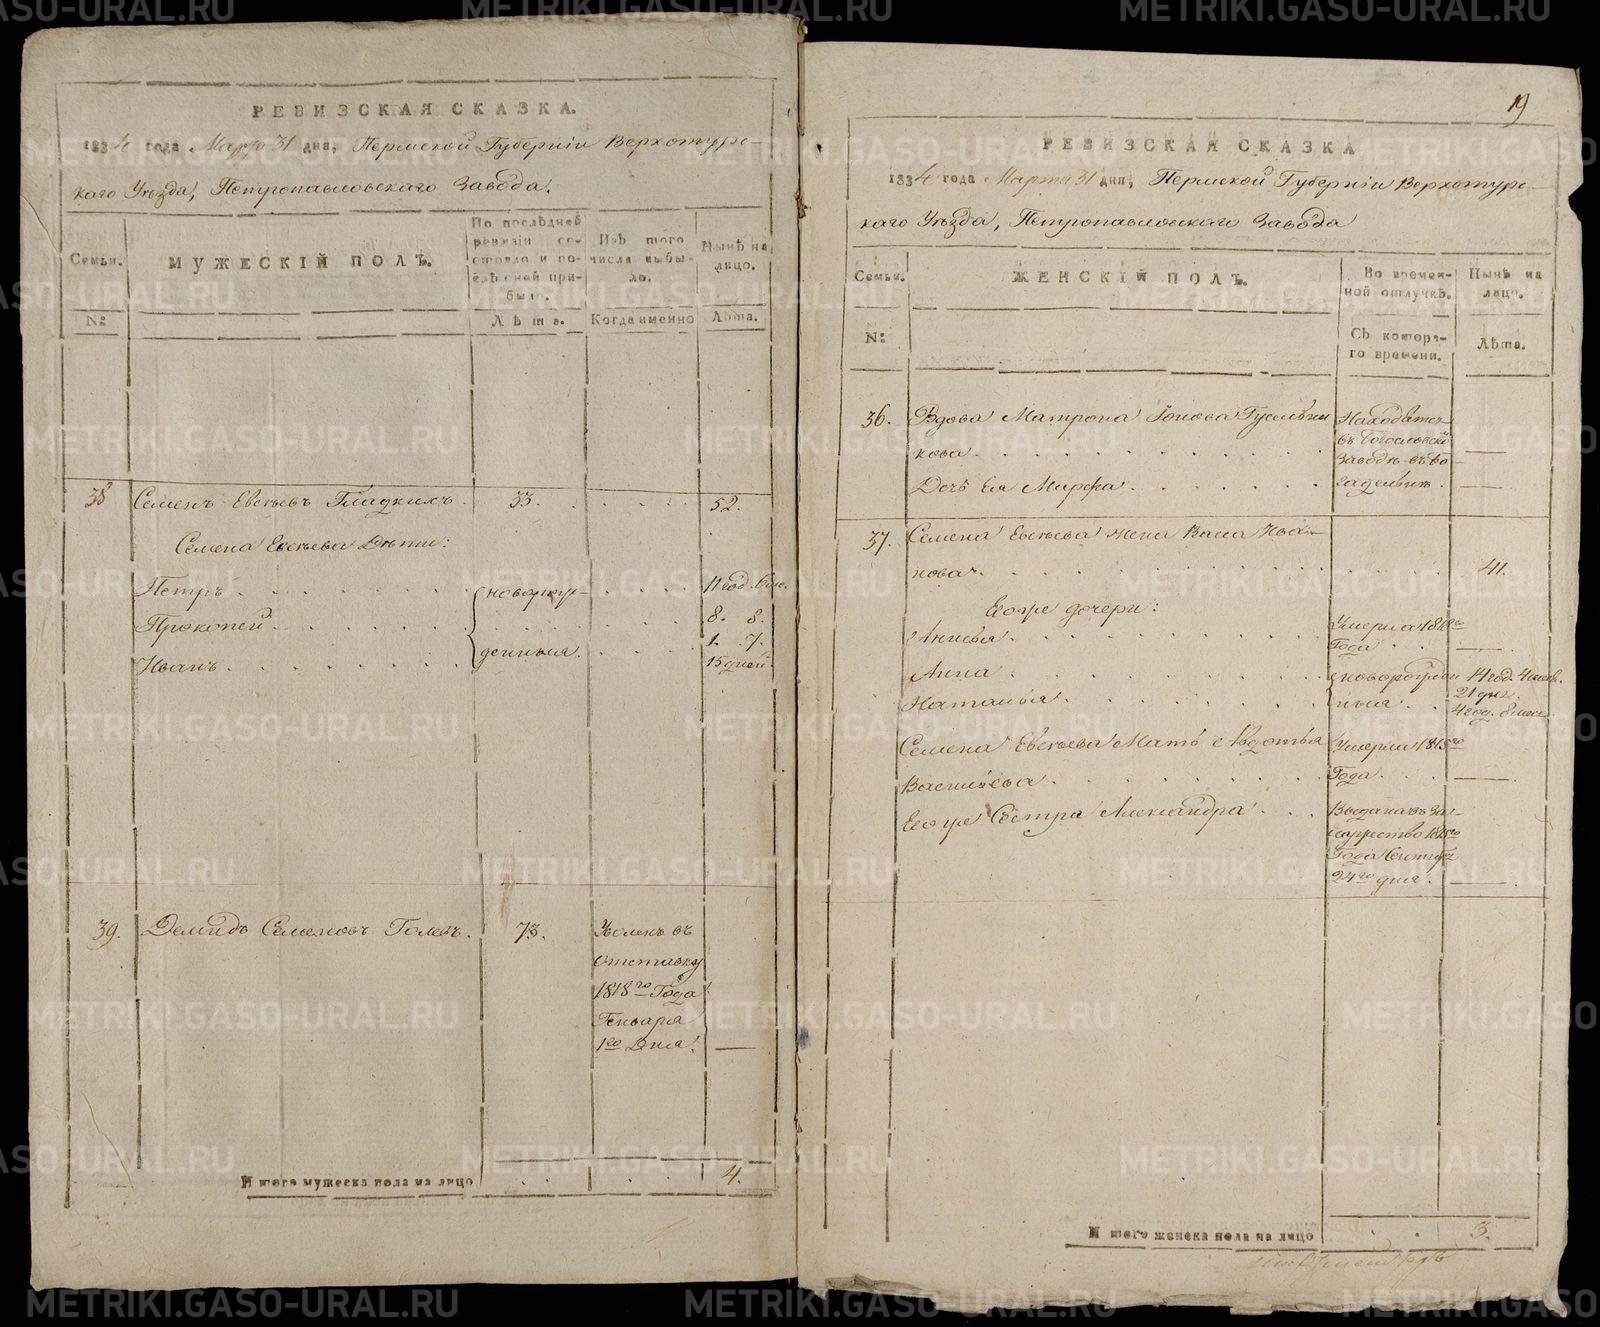 РЕВИЗСКАЯ СКАЗКА.
1834 года Марта 31 дня, Пермской Губерніи Верхотурс-
каго Уѣзда, Петропавловскаго Завода.
Семьи.
МУЖЕСКІЙ ПОЛЪ.
По послѣдней ревизіи состояло и послѣ оной прибыло.
Изъ того числа выбыло.
Нынѣ на лицо.
№:
Лѣта.
Когда именно
Лѣта.
38 Семенъ Евсѣевъ Гладкихъ. 33. 52.
Семена Евсѣева Дѣти:
Петръ новорож- 11 год. 6 мес.
Прокопей 8. 8.
1. 7.
Иванъ денныя. 15 дней.
39. Демидъ Семеновъ Голевъ. 73. Уволенъ въ
отставку
1818го Года
Генваря
1го Дня. —
Итого мужеска пола на лицо 4.
19
РЕВИЗСКАЯ СКАЗКА
1834 года Марта 31 дня, Пермской Губерніи Верхотурс-
каго Уѣзда, Петропавловскаго Завода
Семьи.
ЖЕНСКІЙ ПОЛЪ.
Во временной отлучкѣ.
Нынѣ на лицо.
№:
Съ котораго времени.
Лѣта.
36. Вдова Матрона Іонова Гусельни Находятся
кова въ Богословскомъ
Заводѣ въ бо- —
Дочь Ея Марфа гадельнѣ. —
37. Семена Евсѣева жена Васса Ива-
нова 41.
Егоже дочери: Умерла 18
Анисья Года —
Анна новорожден 14 год. 4 мес.
21 дня.
Наталья ныя 4 год. 8 мес.
Семена Евсѣева Мать Авдотья Умерла 1815го
Васильева Года —
Егоже Сестра Александра Выдана въ За-
мужество 1815го
Года Сентяб
24го дня. —
Итого женска пола на лицо 3.
METRIKI.GASO-URAL.RU